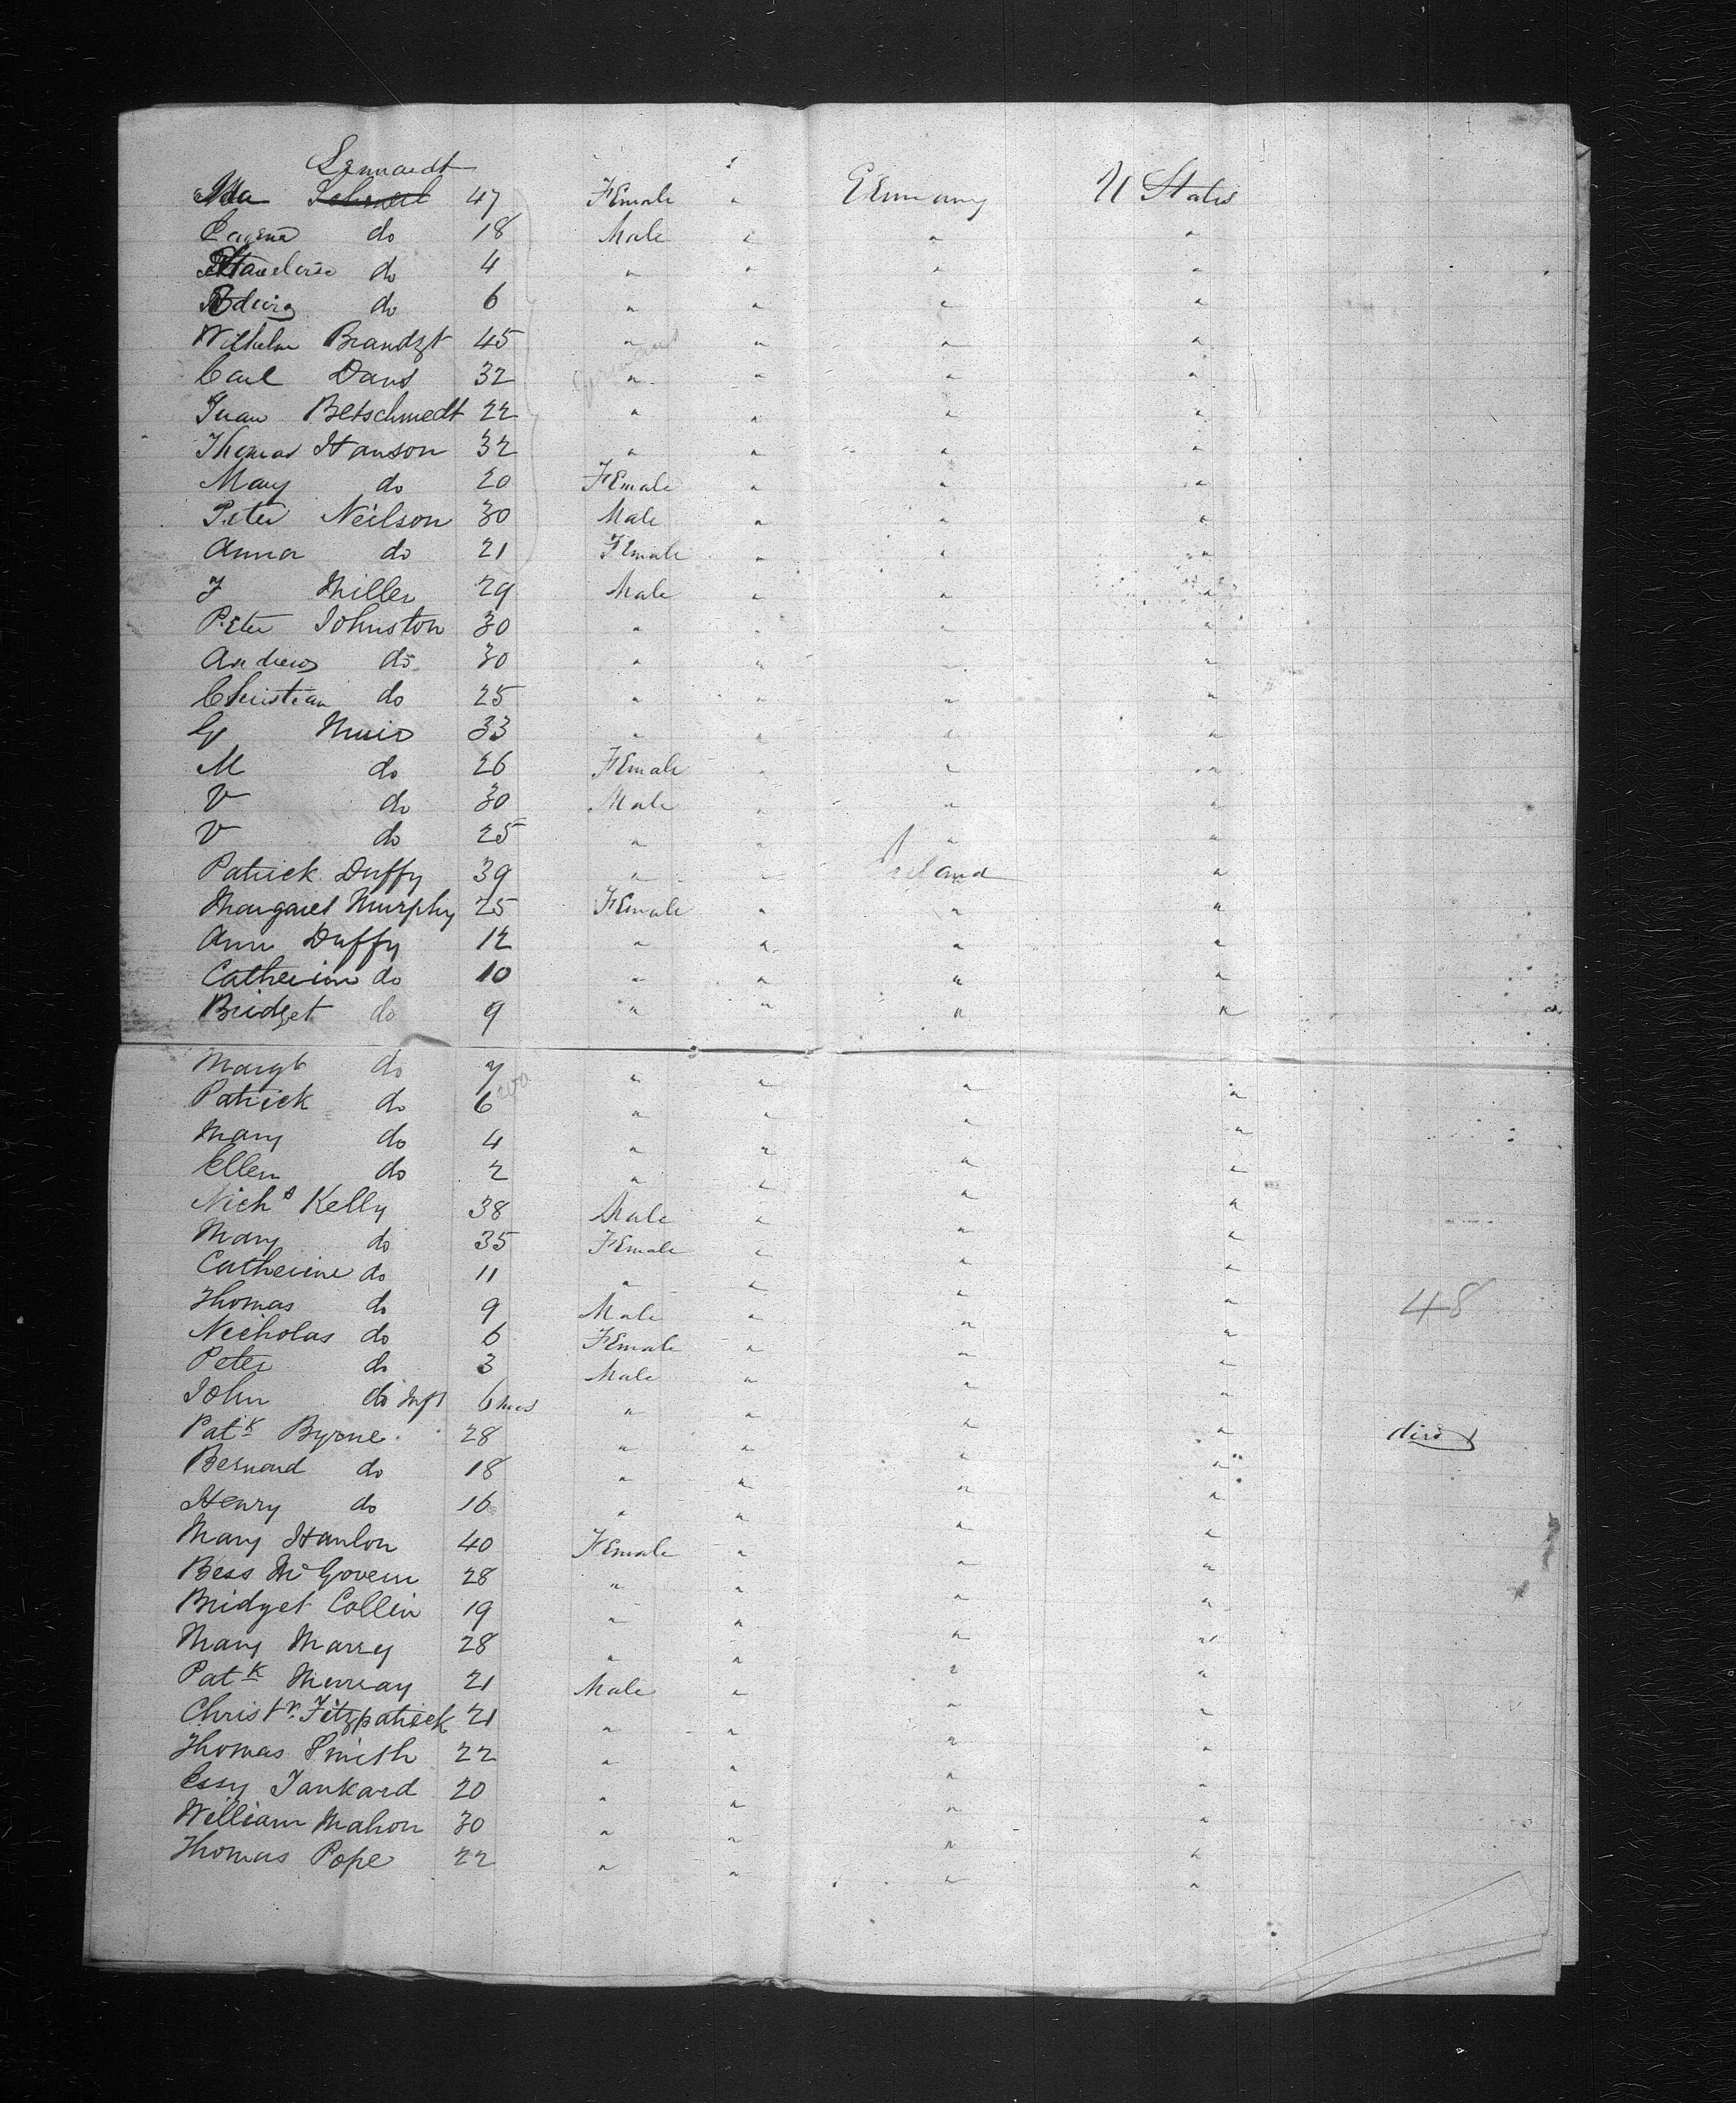 Lennardt
Ida Schnert 47 Female " Germany U States
Eugene do 18 Male " " "
do 4 " " " "
Edwig do 6 " " " "
Wilhelm Brandzt 45 " " " "
Carl Davis 32 " " " "
Juan Betschmedt 22 " " " "
Thomas Hanson 32 " " " "
Mary do 20 Female " " "
Peter Neilson 30 Male " " "
Anna do 21 Female " " "
J Miller 29 Male " " "
Peter Johnston 30 " " " "
Andrew do 30 " " " "
Christian do 25 " " " "
G Muir 33 " " " "
M do 26 Female " " "
V do 30 Male " " "
V do 25 " " " "
Patrick Duffy 39 " " Ireland "
Margaret Murphy 25 Female " " "
Ann Duffy 12 " " " "
Catherine do 10 " " " "
Bridget do 9 " " " "
Margt do 7 " " " "
Patrick do 6 " " " "
Mary do 4 " " " "
Ellen do 2 " " " "
Nichs Kelly 38 Male " " "
Mary do 35 Female " " "
Catherine do 11 " " " "
Thomas do 9 Male " " " 48
Nicholas do 6 Female " " "
Peter do 3 Male " " "
John do Inft 6 mos " " " " died
Patk Byrne 28 " " " "
Bernard do 18 " " " "
Henry do 16 " " " "
Mary Hanlon 40 Female " " "
Bess McGovern 28 " " " "
Bridget Collin 19 " " " "
Mary Marry 28 " " " "
Patk Murray 21 Male " " "
Christr. Fitzpatrick 21 " " " "
Thomas Smith 22 " " " "
Essy Tankard 20 " " " "
William Mahon 30 " " " "
Thomas Pope 22 " " " "